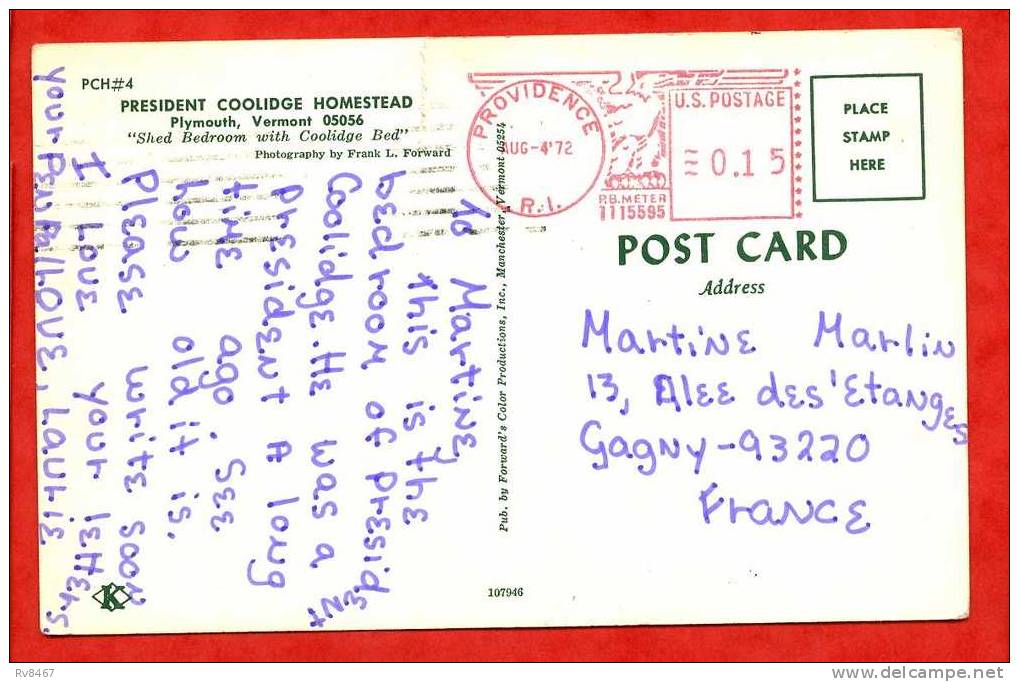 PCH#4
PRESIDENT COOLIDGE HOMESTEAD
Plymouth, Vermont 05056
"Shed Bedroom with Coolidge Bed"
Photography by Frank L. Forward
To Martine,
this is the
bedroom of president
Coolidge. He was a
president a long
time ago. See
how old it is.
Please write soon
I Love your letters.
your PenPal/LOVE, Laurie
K
Pub. by Forward's Color Productions, Inc., Manchester, Vermont 05254
107946
PROVIDENCE
AUG-4'72
R.I.
U.S. POSTAGE
0.15
P.B. METER
1115595
PLACE
STAMP
HERE
POST CARD
Address
Martine Marlin
13, Alee des'Etanges
Gagny-93220
France
Rv8467
www.delcampe.net